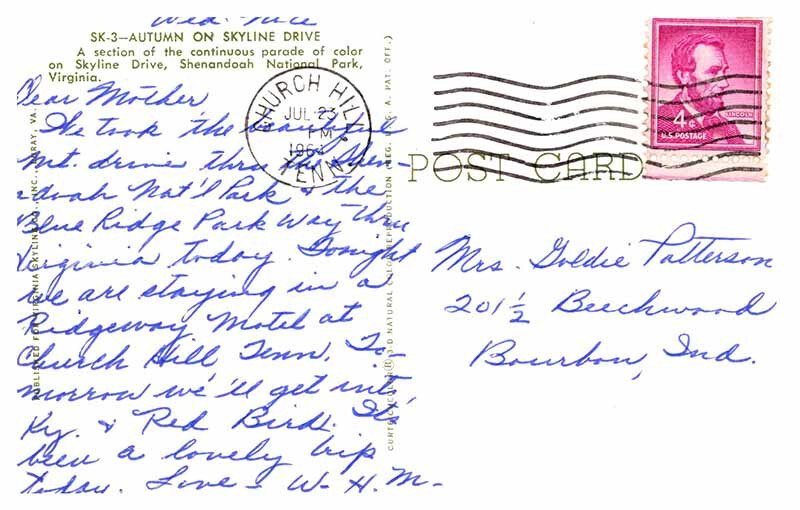 Wed. Nite
SK-3—AUTUMN ON SKYLINE DRIVE
A section of the continuous parade of color
on Skyline Drive, Shenandoah National Park,
Virginia.
Dear Mother
We took the beautiful
Mt. drive thru the Shen-
doah Nat'l Park & the
Blue Ridge Park Way thru
Virginia today. Tonight
we are staying in a
Ridgeway Motel at
Church Hill, Tenn. To-
morrow we'll get into
Ky. & Red Bird. It's
been a lovely trip
today. Love - W. H. M-
PUBLISHED FOR VIRGINIA SKYLINE CO., INC., LURAY, VA.
CURTEICHCOLOR® 3-D NATURAL COLOR REPRODUCTION (REG. U.S.A. PAT. OFF.)
CHURCH HILL
JUL 23
PM
TENN.
POST CARD
LINCOLN
4¢
U.S. POSTAGE
Mrs. Goldie Patterson
201½ Beechwood
Bourbon, Ind.